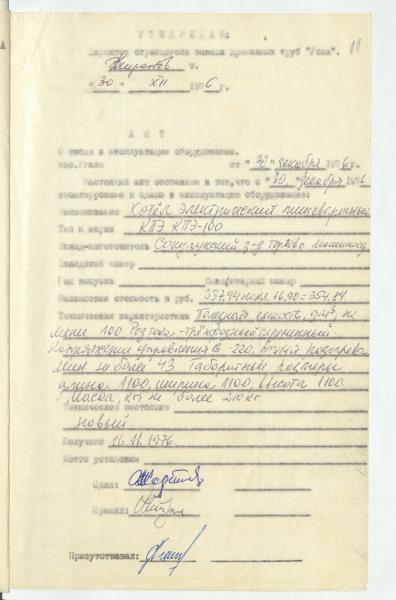 11
УТВЕРЖДАЮ:
Директор огралысого завода дренажных труб
"30" XII 1976г.
АКТ
О вводе в эксплуатацию оборудования.
пос. Угале от "30" декабря 1976г.
Настоящий акт составлен в том, что с "30" декабря 1976
смонтировано и сдано в эксплуатацию оборудование:
Наименование Котёл электрический пищеварочный
Тип и марка КПЭ КПЭ-100
Завод-изготовитель з-д Торгово
Заводской номер
Год выпуска Инвентарный номер
Балансовая стоимость в руб. 337.94 16.90=354,84
Техническая характеристика Полезная емкость, дм³, не
менее 100 Род тока -трёхфазный переменный
Напряжение управления В -220, время разогрева
мин не более 43 Габаритные размеры
длина 1100, ширина 1100, высота 1100
Масса, кг, не более 210 кг
Техническое состояние
новый
Получено 16.11.1976.
Место установки
Сдал:
Принял:
Присутствовал: